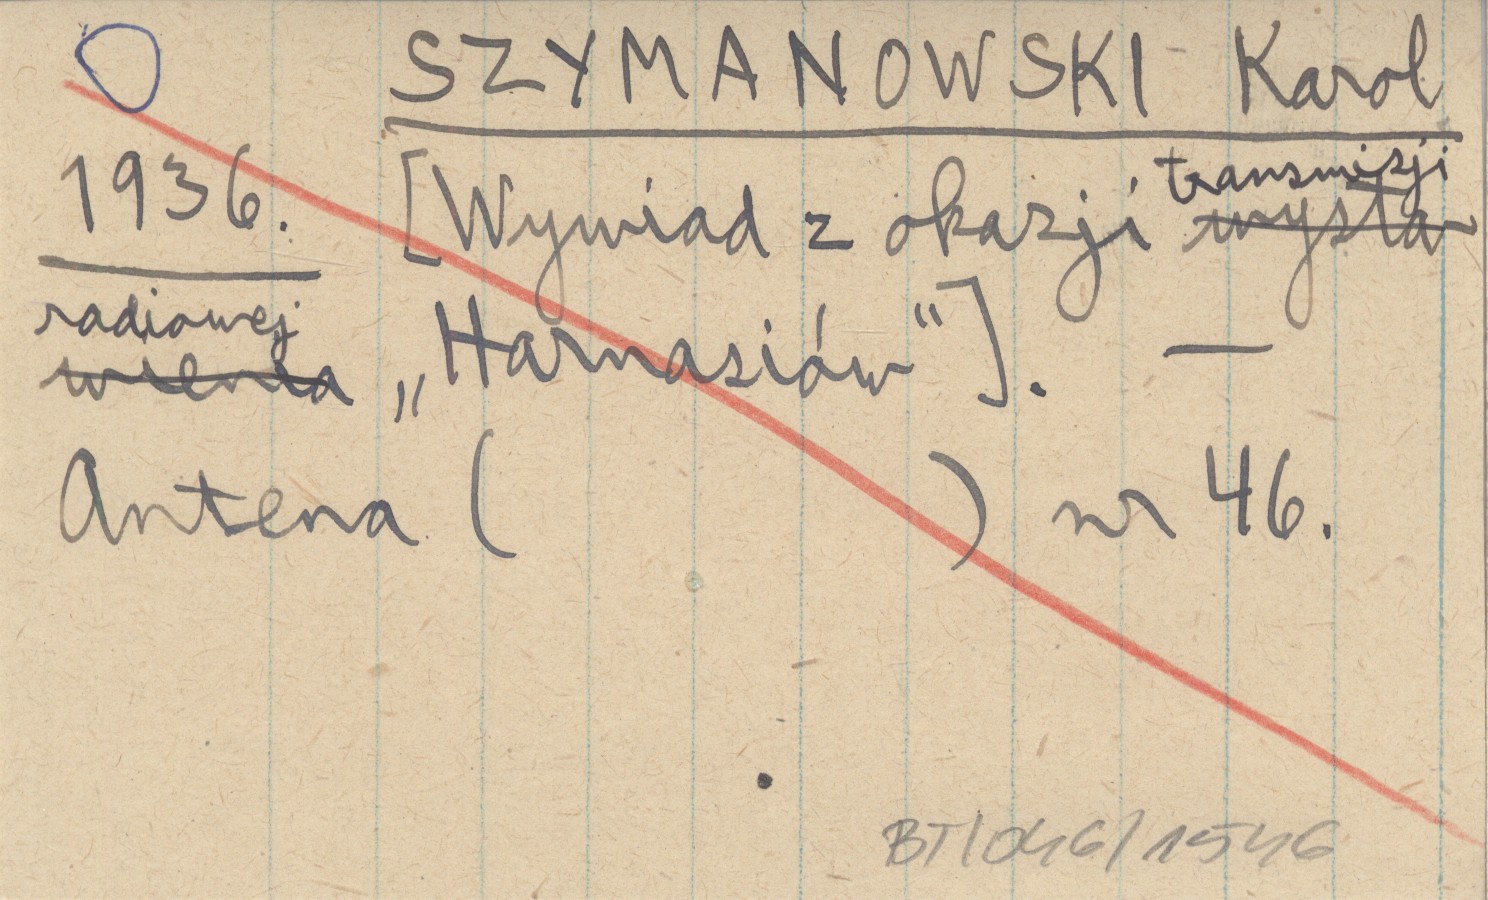 SZYMANOWSKI Karol
1936. [Wywiad z okazji transmisji wysta
radiowej wienia „Harnasiów"]. —
Antena ( ) nr 46.
BT/046/1546